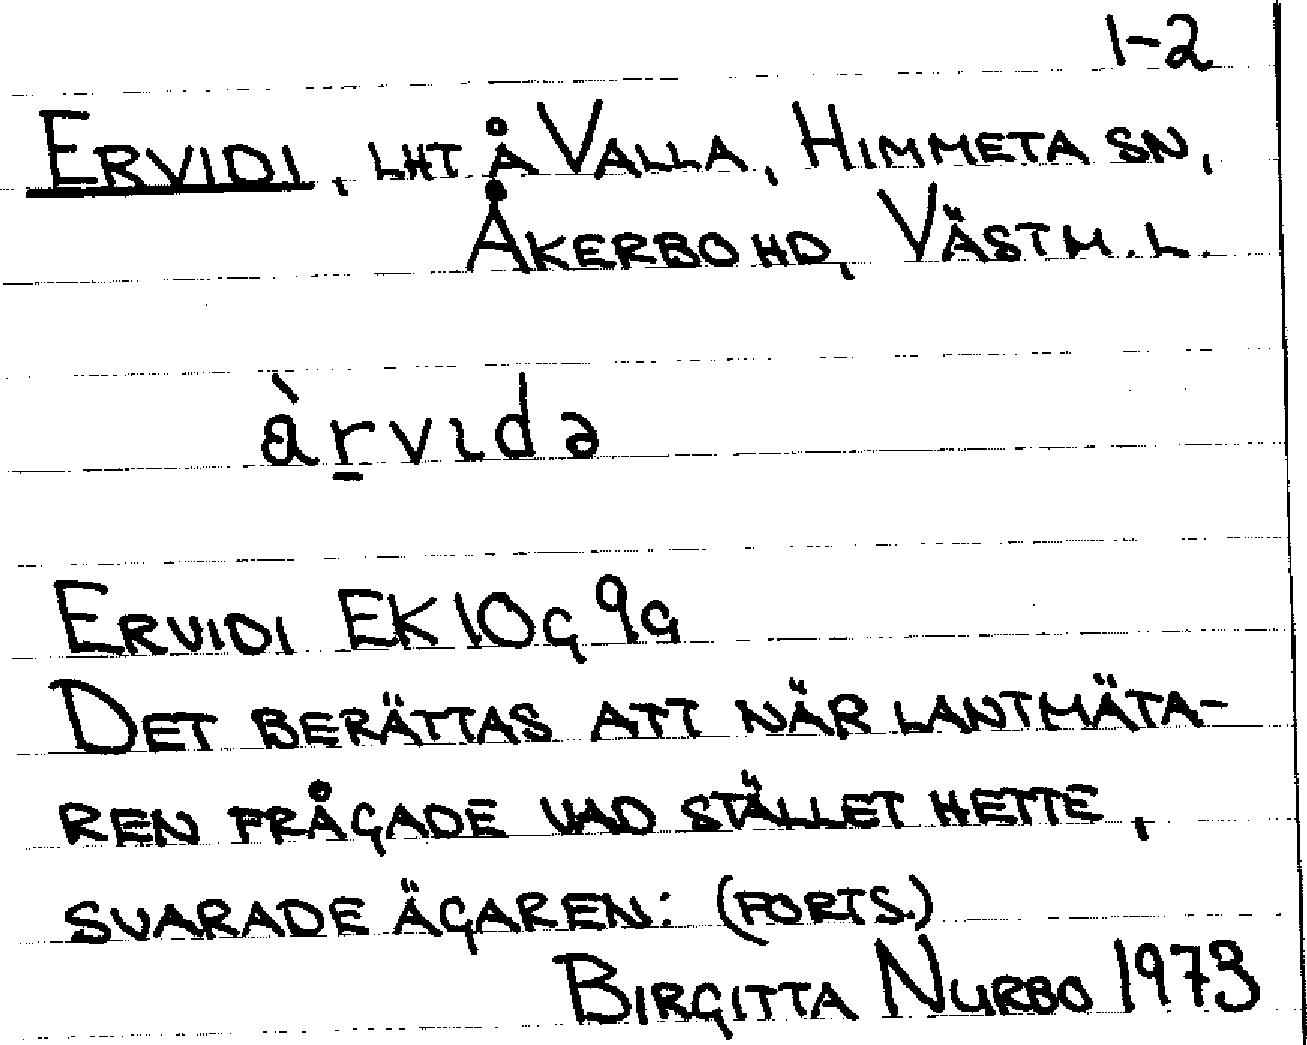 1-2
ERVIDI, LHT Å VALLA, HIMMETA SN,
ÅKERBO HD, VÄSTM.L.
àrvıdə
ERVIDI EK 10G 9G
DET BERÄTTAS ATT NÄR LANTMÄTA-
REN FRÅGADE VAD STÄLLET HETTE,
SVARADE ÄGAREN: (FORTS.)
BIRGITTA NURBO 1973